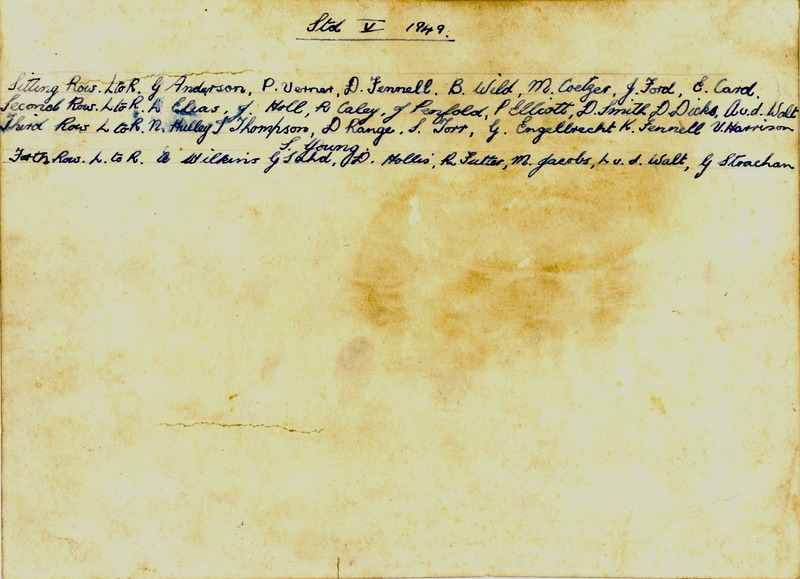 Std V 1949.
Sitting Row. L to R. G Anderson, P. Verner, D. Fennell. B. Wild, M. Coetzer, J. Ford, E. Card.
Second Row. L to R. L Elias, J. Holl, R Caley, J Penfold, P Elliott, D. Smith D Dicks, A v.d. Walt
Third Row L to R. N. Hulley T Thompson, D Range, S. Torr, G. Engelbrecht K. Fennell V. Harrison
S. Young.
Forth Row. L. to R. Wilkins G D. Hollis, R. Futter, M. Jacobs, L v. d. Walt, G Strachan